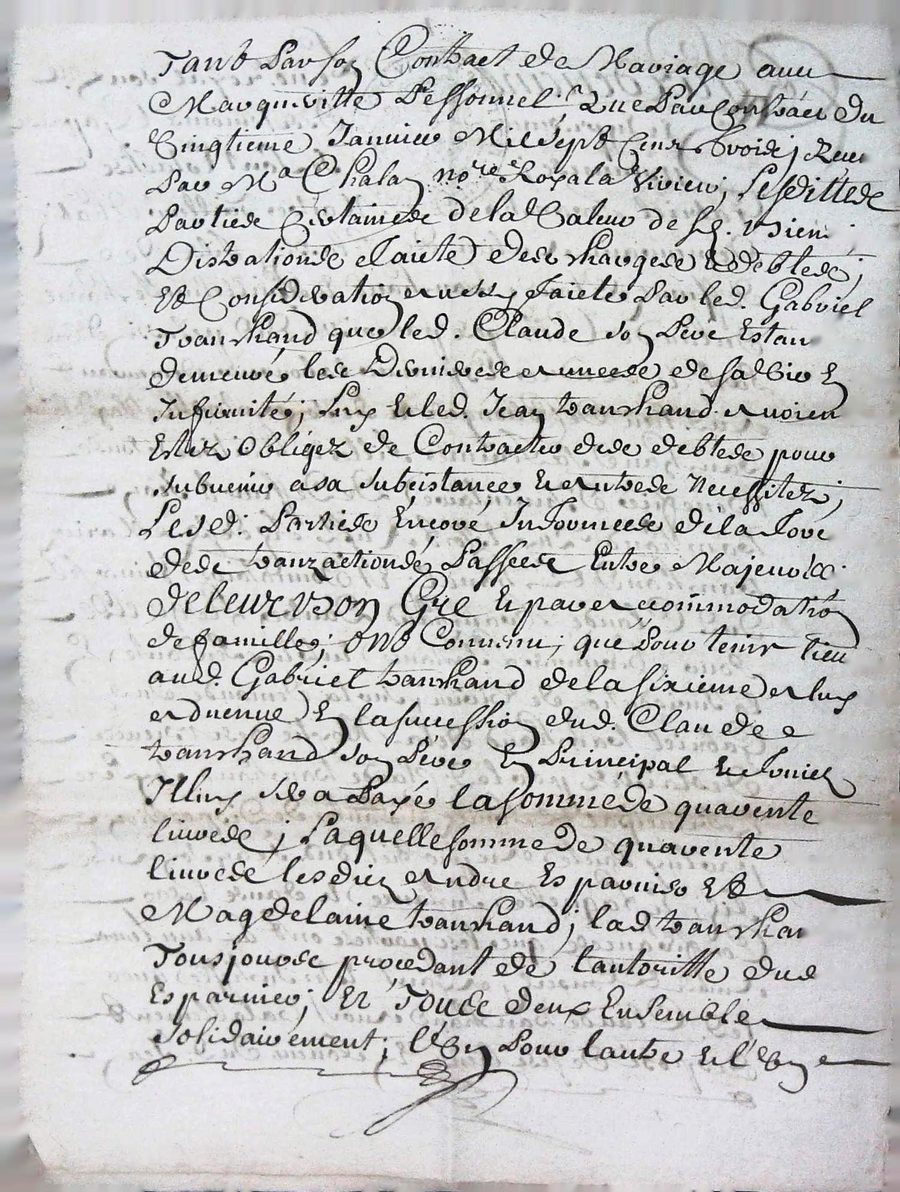 Tant par son Contract de Mariage avec
Margueritte Pessonnel, que par Contract du
vingtieme Janvier Mil Sept Cens trois; Receu
par Me Chalan nore Royal a Vivien; Lesdittes
parties Certaines de la valeur de ses biens
Distractions faicte des charges et debtes;
Et Consideration aussy faicte par led. Gabriel
Tranchand que led. Claude son pere Estan
demeuré les Dernieres années de sa vie En
Infirmité; luy et led. Jean tranchand avoien
Estez obligez de Contracter des debtes pour
subvenir a sa subcistance et autres Necessitez;
Lesd. parties Encore Informees de la force
des tranzactions passees Entre Majeurs
de leur bon Gré et par accommodation
de famille; ont Convenu; que pour tenir lieu
aud. Gabriel tranchand de la sixieme a luy
advenue En la succession dud. Claude
tranchand son pere En principal et
Illuy sera payé la somme de quarente
livres; Laquelle somme de quarente
livres lesdiz André Esparvier Et
Magdelaine tranchand; lad tranchan
Tousjours procedant de l'autoritté dud
Esparvier; Et Tous deux Ensemble
solidairement; l'un pour l'autre et l'un